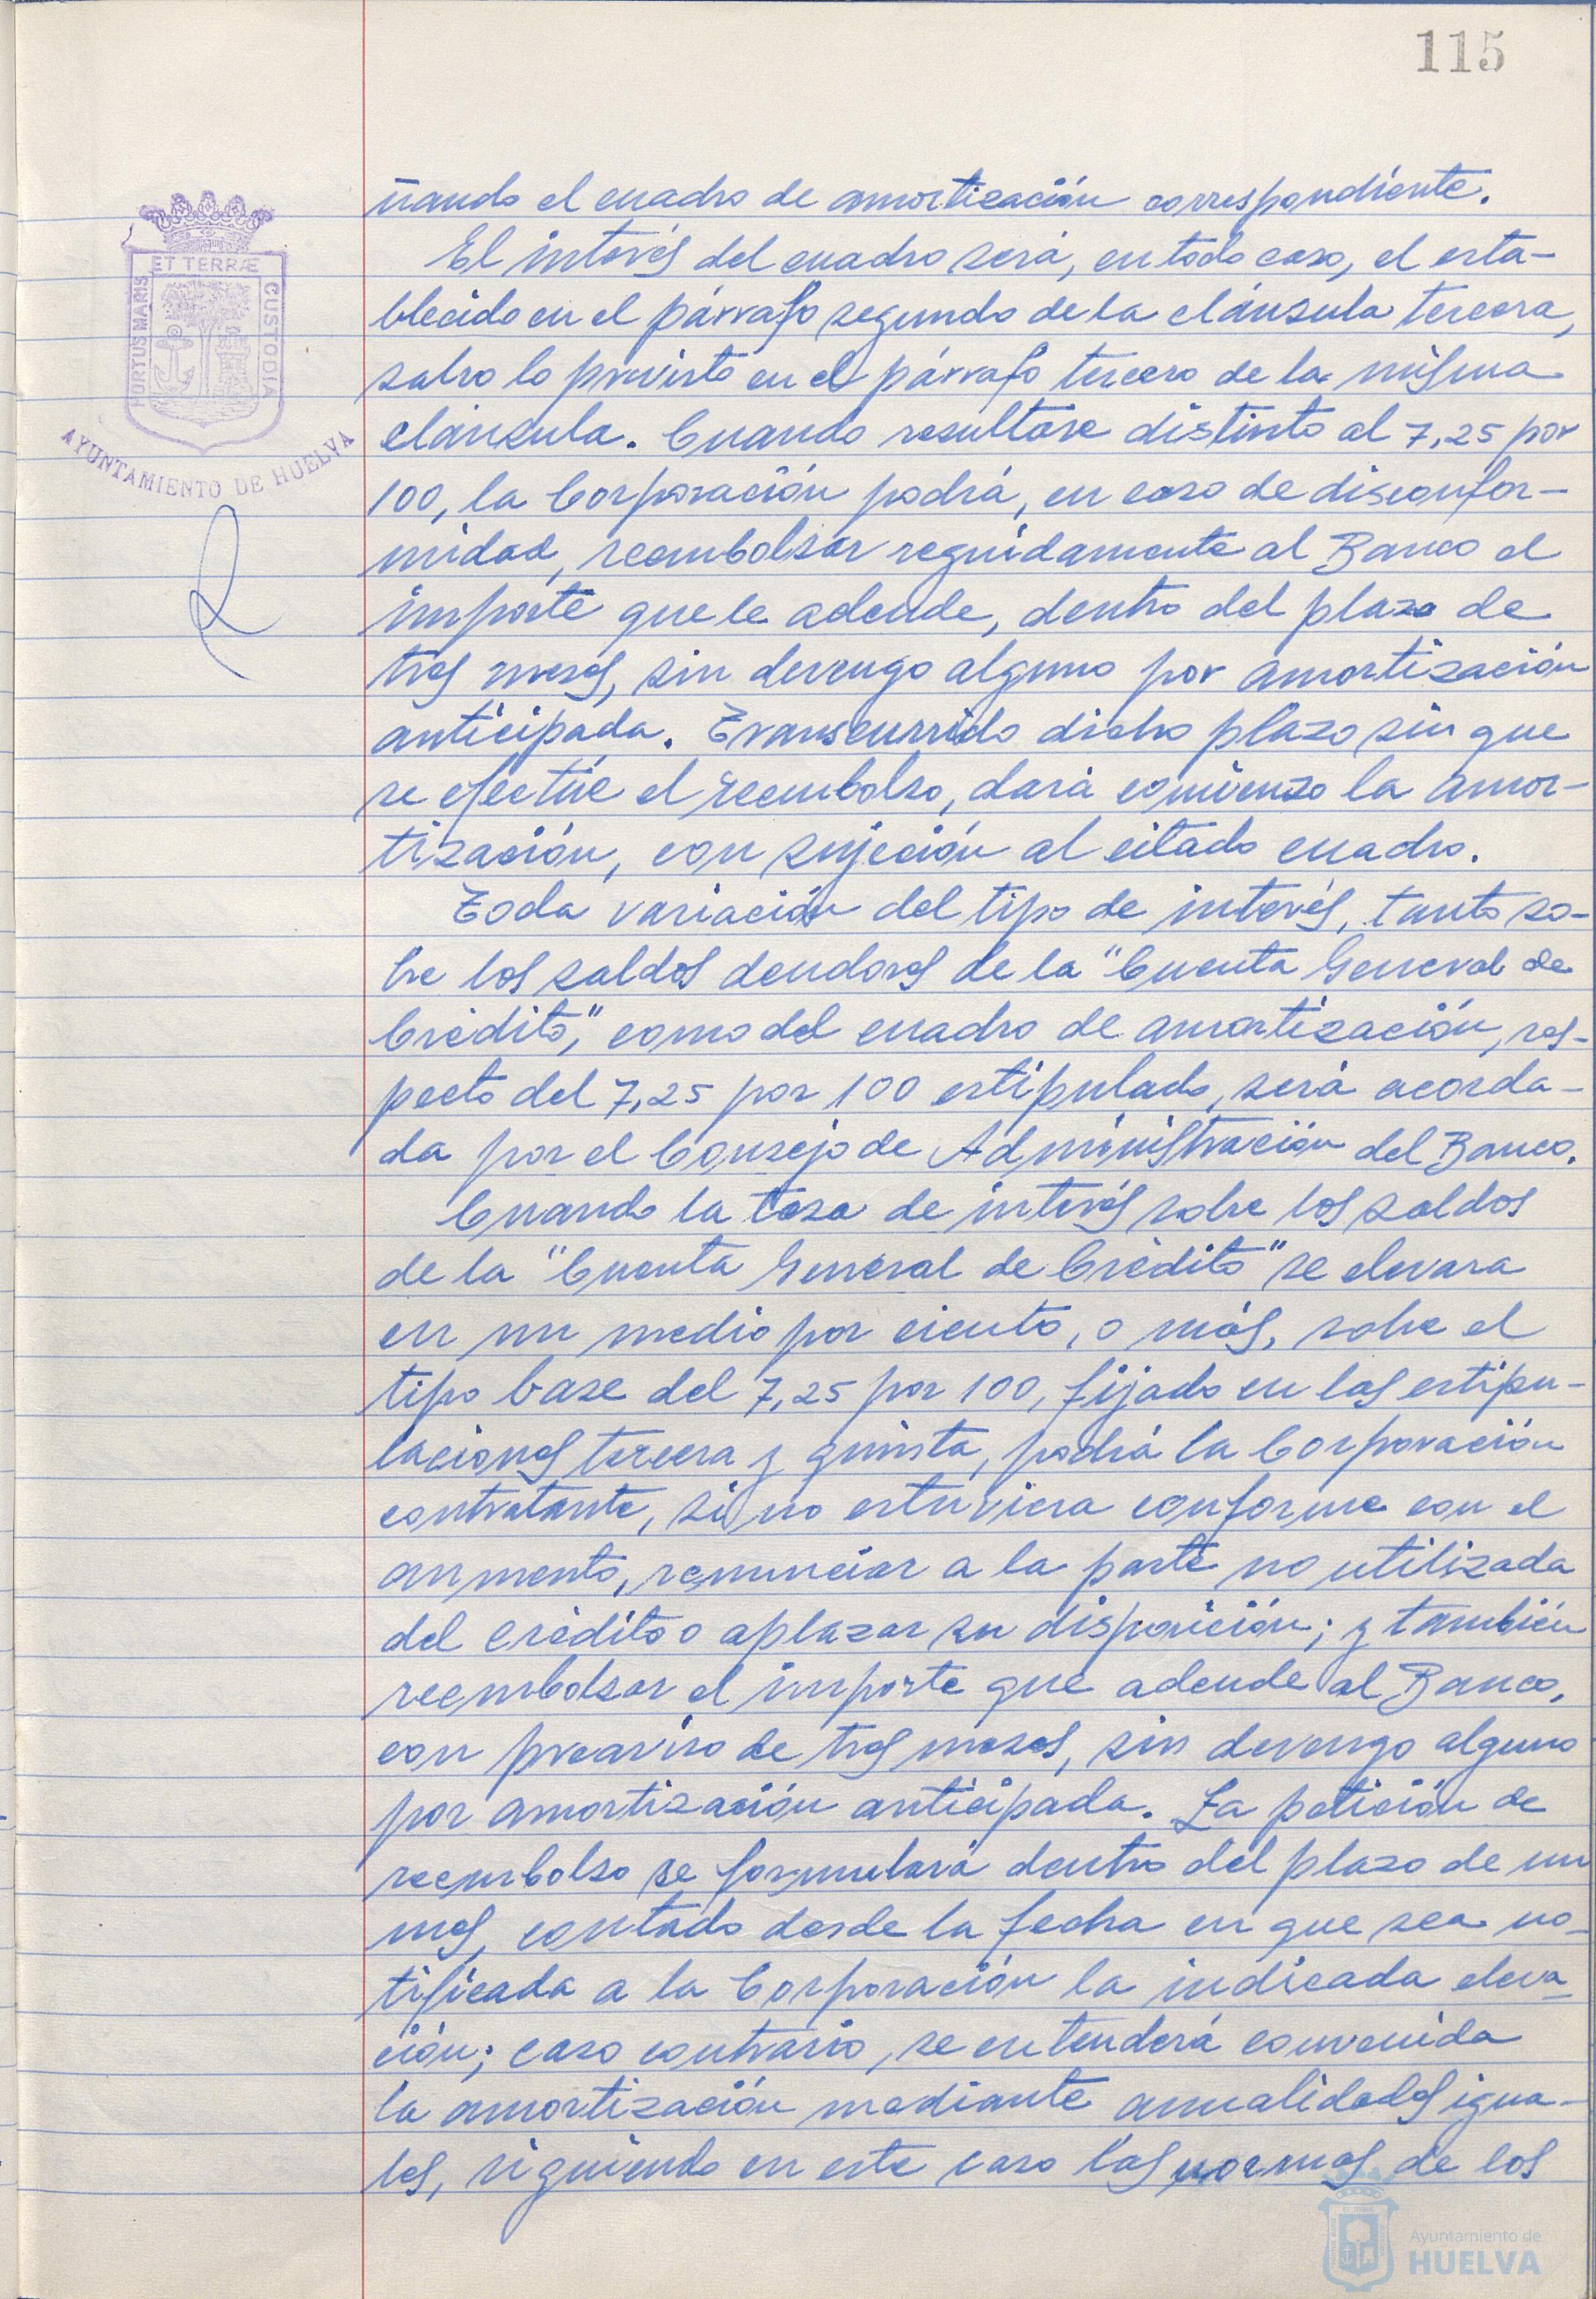 115
ñando el cuadro de amortización correspondiente.
El interés del cuadro será, en todo caso, el esta-
blecido en el párrafo segundo de la cláusula tercera,
salvo lo previsto en el párrafo tercero de la misma
cláusula. Cuando resultare distinto al 7,25 por
100, la Corporación podrá, en caso de disconfor-
midad, reembolsar seguidamente al Banco el
importe que le adeude, dentro del plazo de
tres meses, sin devengo alguno por amortización
anticipada. Transcurrido dicho plazo sin que
se efectúe el reembolso, dará comienzo la amor-
tización, con sujeción al citado cuadro.
Toda variación del tipo de interés, tanto so-
bre los saldos deudores de la "Cuenta General de
Crédito," como del cuadro de amortización, res-
pecto del 7,25 por 100 estipulado, será acorda-
da por el Consejo de Administración del Banco.
Cuando la tasa de interés sobre los saldos
de la "Cuenta General de Crédito" se elevara
en un medio por ciento, o más, sobre el
tipo base del 7,25 por 100, fijado en las estipu-
laciones tercera y quinta, podrá la Corporación
contratante, si no estuviera conforme con el
aumento, renunciar a la parte no utilizada
del crédito o aplazar su disposición; y también
reembolsar el importe que adeude al Banco,
con preaviso de tres meses, sin devengo alguno
por amortización anticipada. La petición de
reembolso se formulará dentro del plazo de un
mes, contado desde la fecha en que sea no-
tificada a la Corporación la indicada eleva-
ción; caso contrario, se entenderá convenida
la amortización mediante anualidades igua-
les, siguiendo en este caso las normas de los
PORTUS MARIS ET TERRÆ CUSTODIA
AYUNTAMIENTO DE HUELVA
Ayuntamiento de
HUELVA